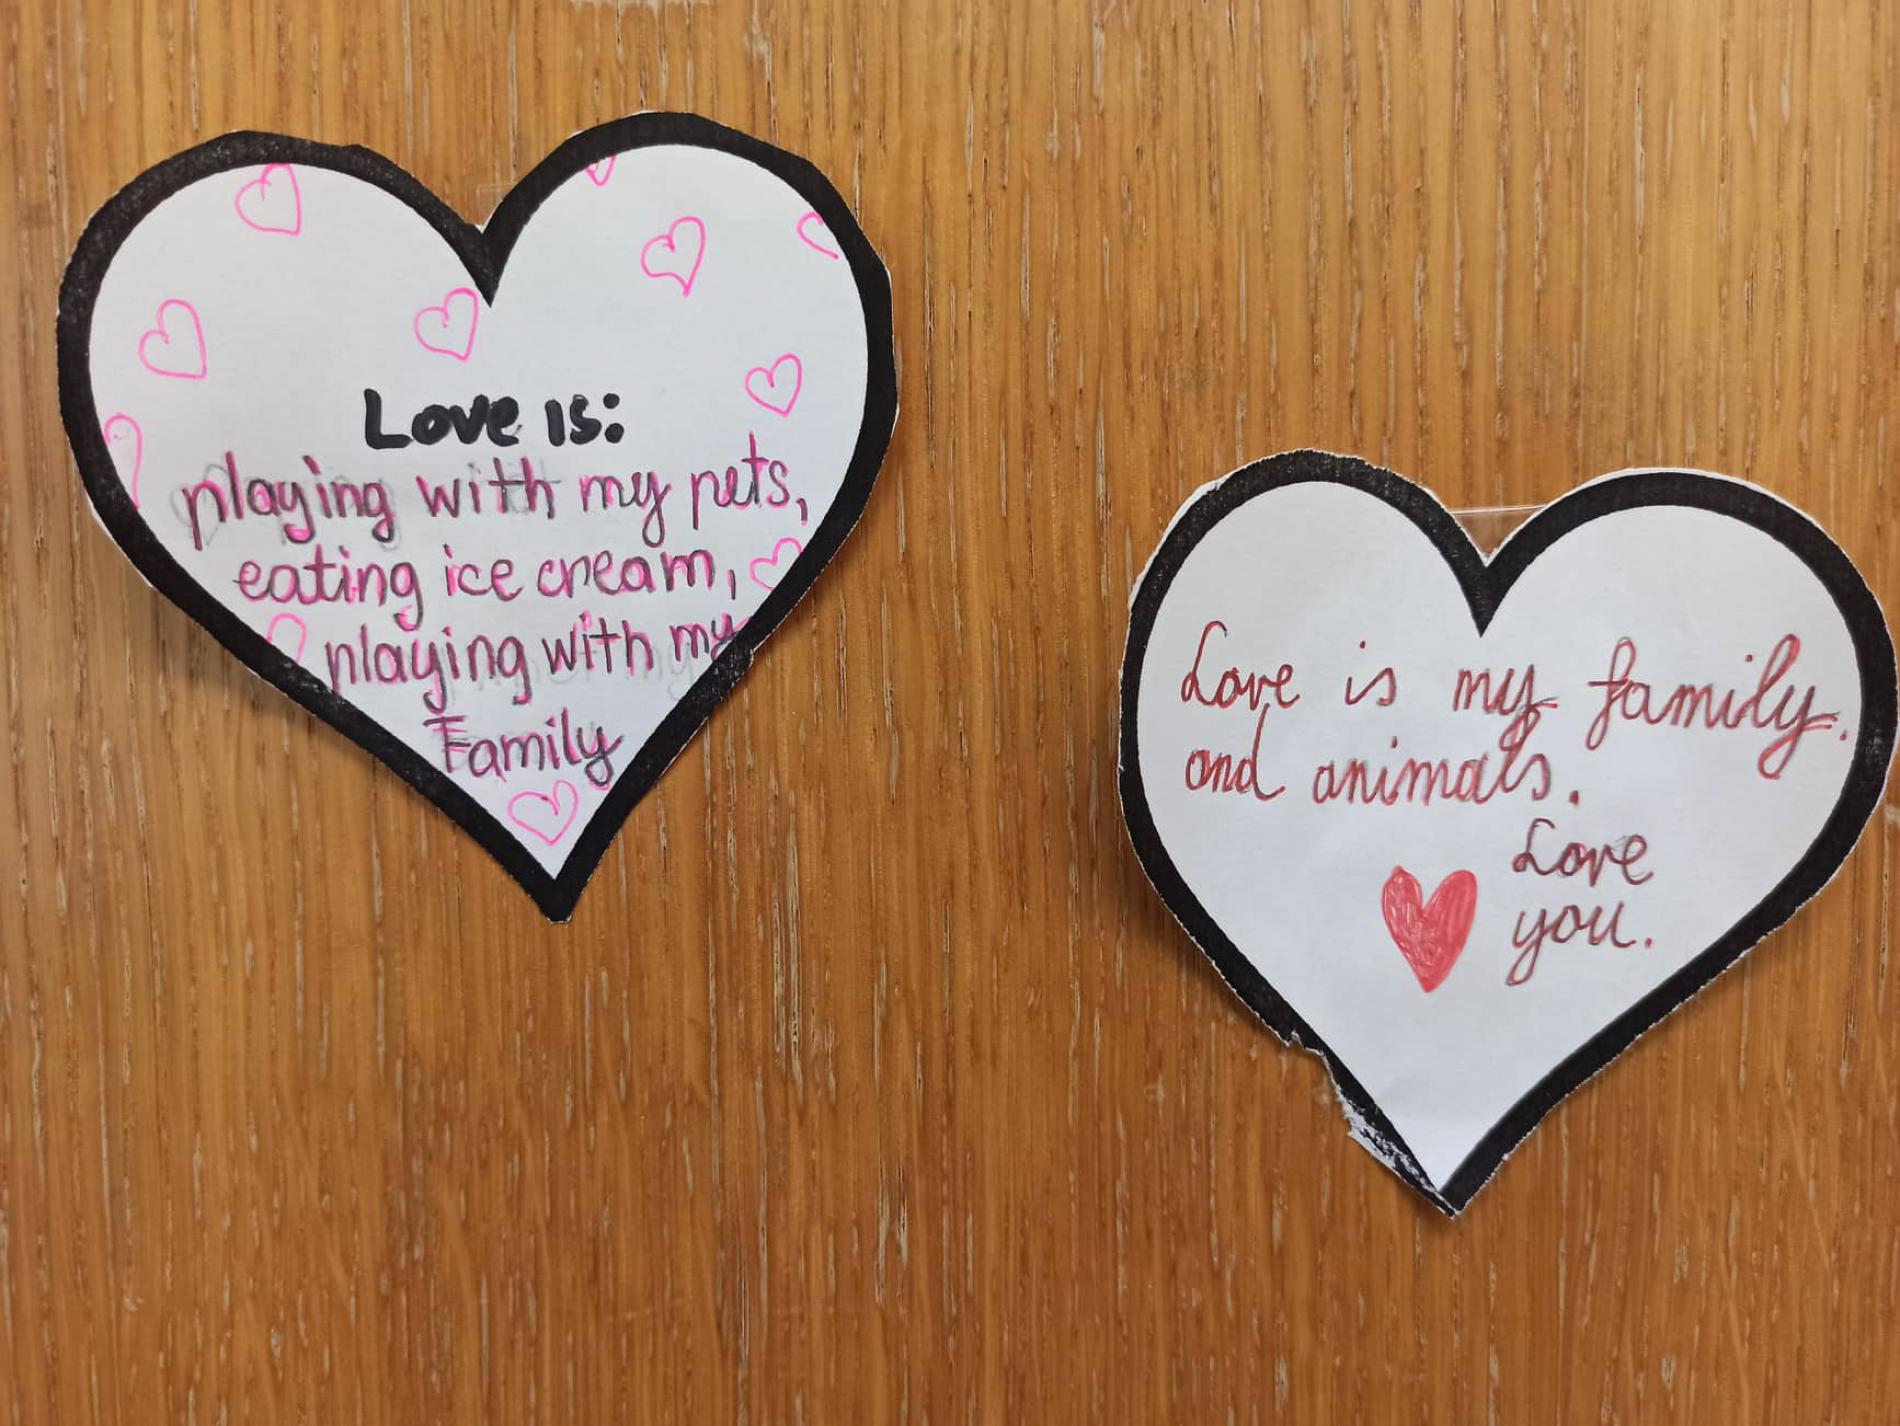 Love is:
playing with my pets,
eating ice cream,
playing with my
Family
Love is my family.
and animals.
Love
you.